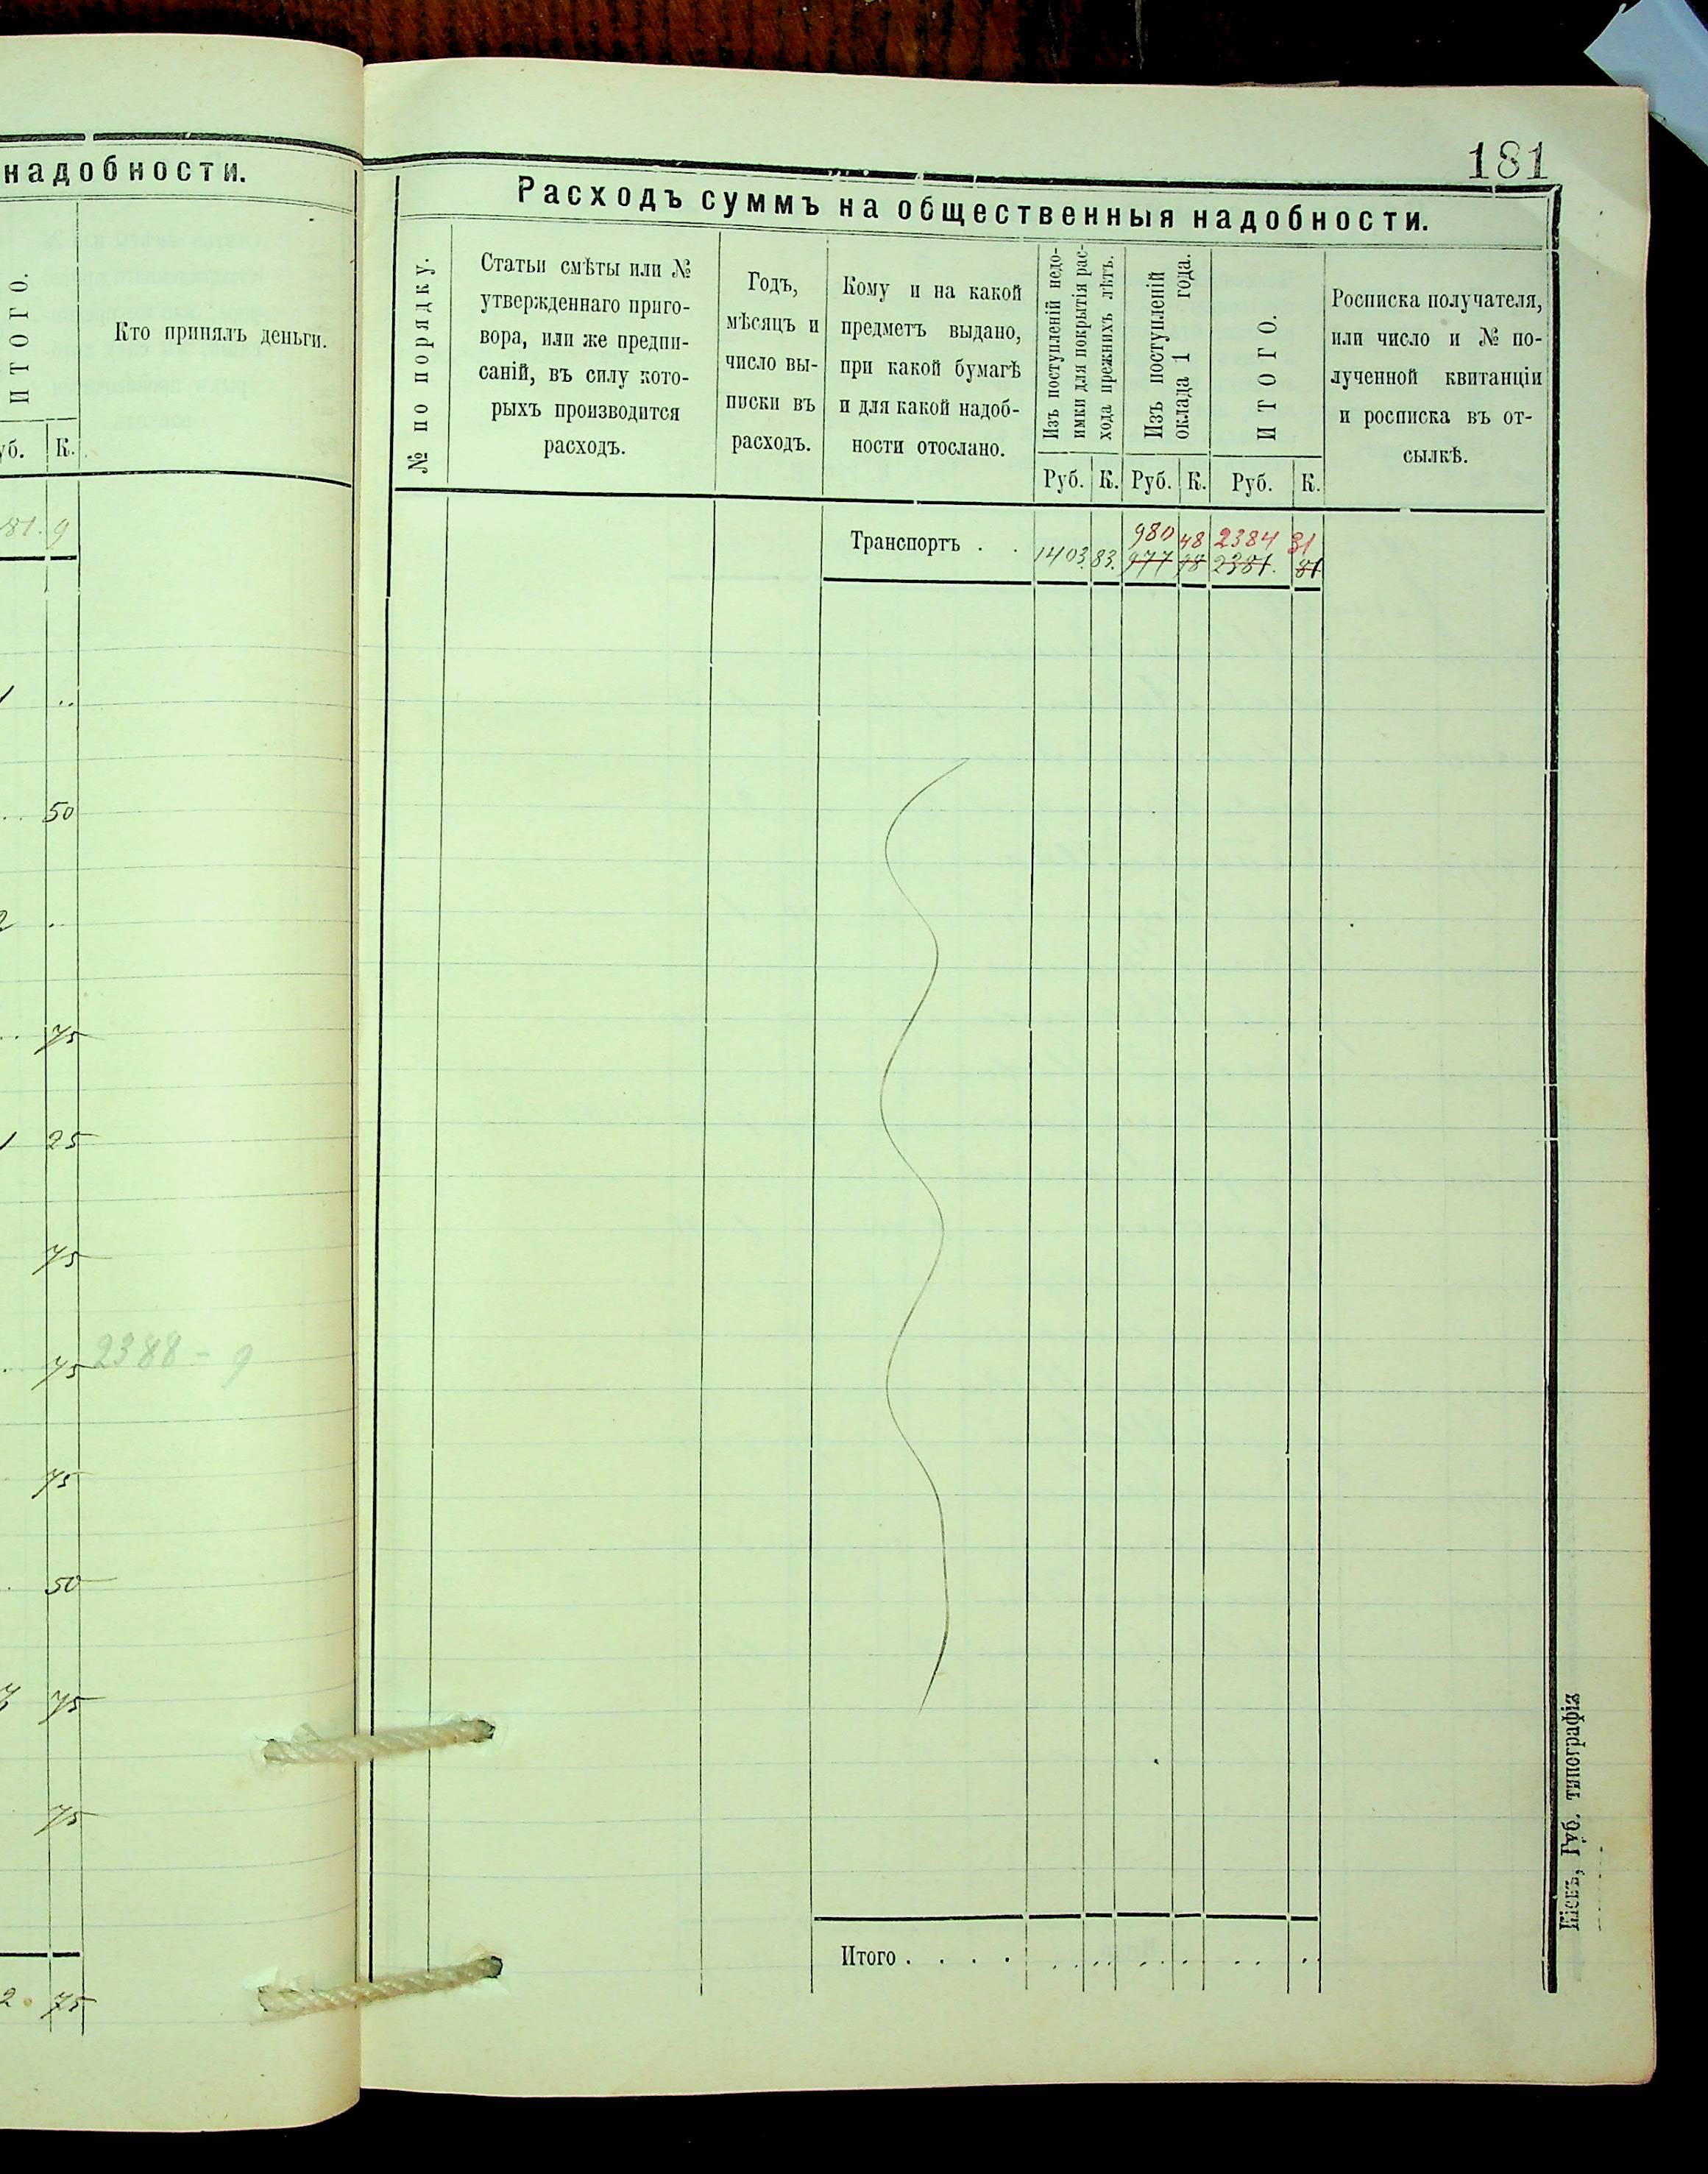 надобности.
ИТОГО.
Кто принялъ деньги.
уб. К.
81. 9
50
75
25
75
75
2388 - 9
75
50
75
75
2. 75
181
Расходъ суммъ на общественныя надобности.
№ по порядку.
Статьи смѣты или №
утвержденнаго приго-
вора, или же предпи-
саній, въ силу кото-
рыхъ производится
расходъ.
Годъ,
мѣсяцъ и
число вы-
писки въ
расходъ.
Кому и на какой
предметъ выдано,
при какой бумагѣ
и для какой надоб-
ности отослано.
Изъ поступленій недо-
имки для покрытія рас-
хода прежнихъ лѣтъ.
Изъ поступленій
оклада 1 года.
ИТОГО.
Росписка получателя,
или число и № по-
лученной квитанціи
и росписка въ от-
сылкѣ.
Руб. К. Руб. К. Руб. К.
980 48 2384 31
Транспортъ . . 1403. 83. 977 98 2381. 81
Итого . . . .
Кіевъ, Губ. типографія